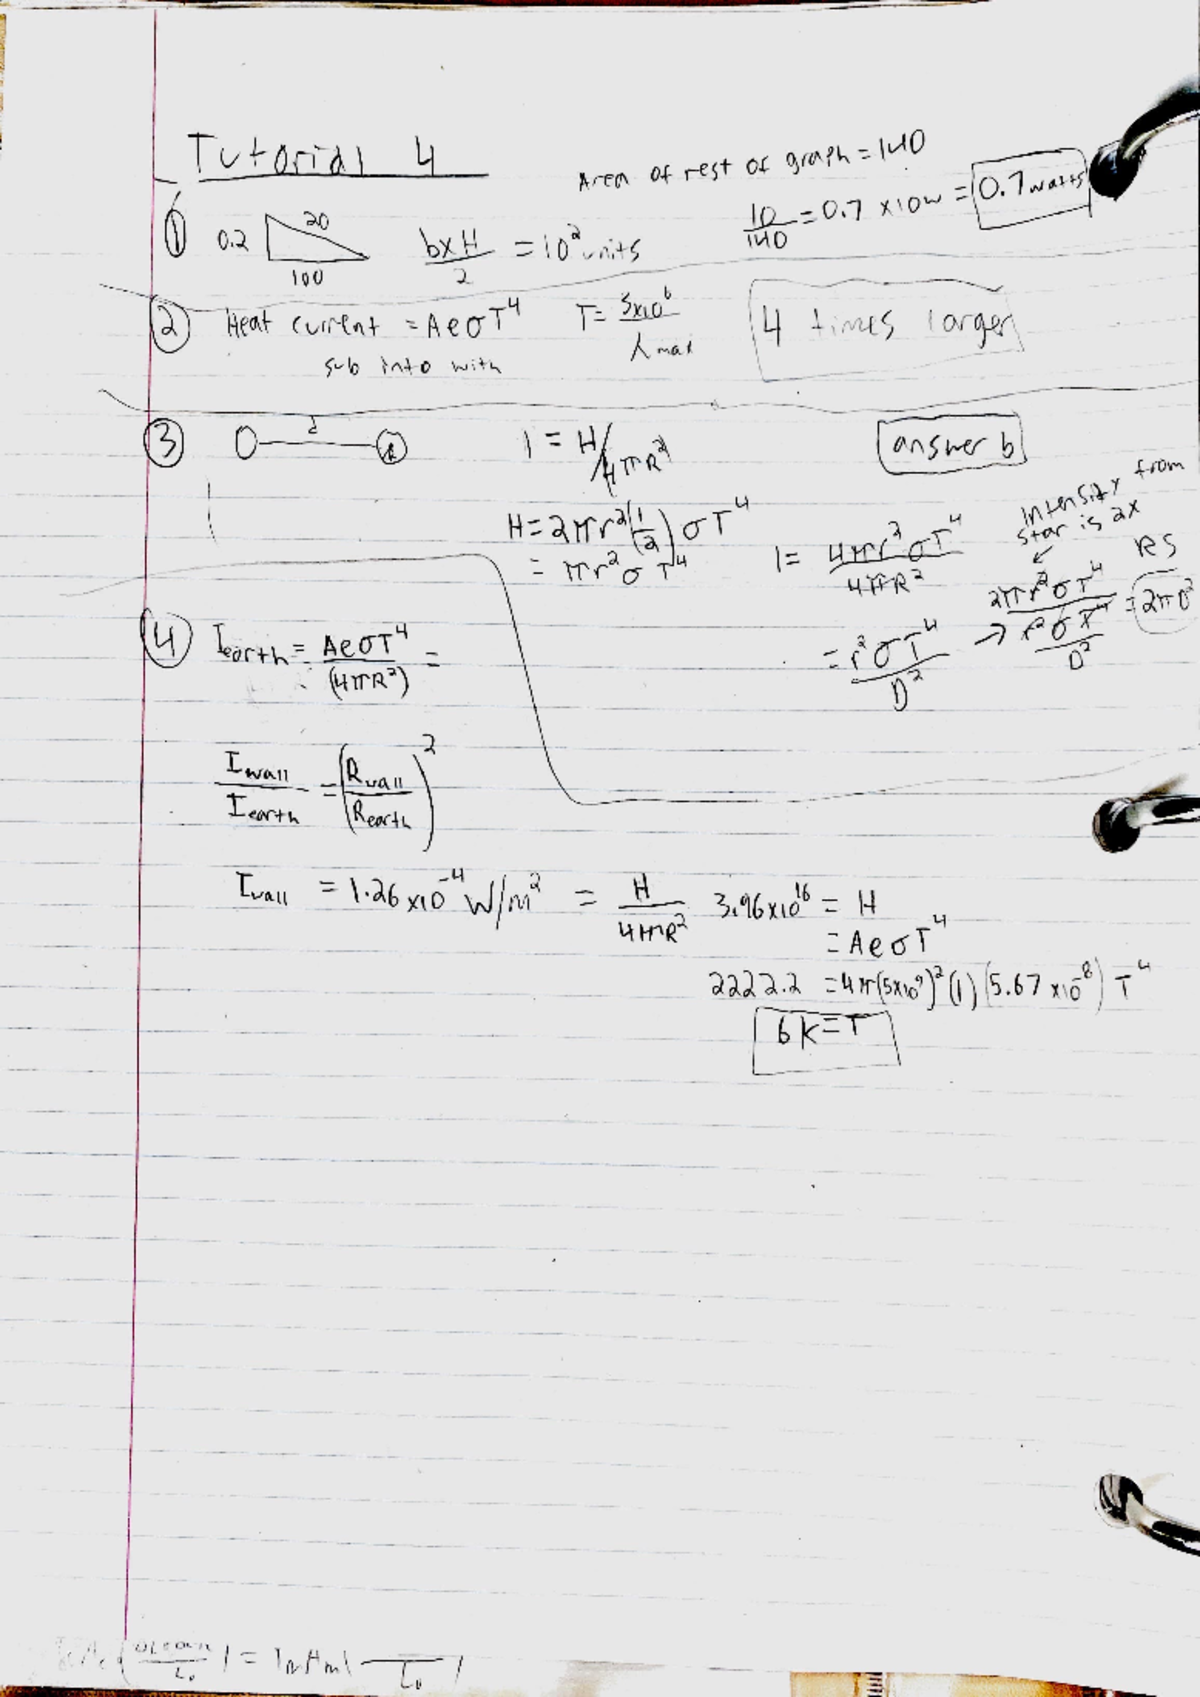 Tutorial 4
Area of rest of graph = 140
① 0.2 20 100 bxH/2 = 10² units 10/140 = 0.7 x10w = 0.7 watts
② Heat current = AeσT⁴ T = 3x10⁶/λmax 4 times larger
sub into with
③ d R I = H/4πR² answer b
H = 2πr²(1/2)σT⁴
= πr²σT⁴
I = 4πr²σT⁴/4πR²
= r²σT⁴/D²
Intensity from
star is 2x
→ 2πr²σT⁴/(r²σT⁴/D²) = 2πD²
RS
④ Iearth = AeσT⁴/(4πR²) =
Iwall/Iearth = (Rwall/Rearth)²
Iwall = 1.26 x10⁻⁴ W/m² = H/4πR² 3.96x10¹⁶ = H
= AeσT⁴
2222.2 = 4π(5x10⁹)²(1)(5.67 x10⁻⁸) T⁴
6K = T